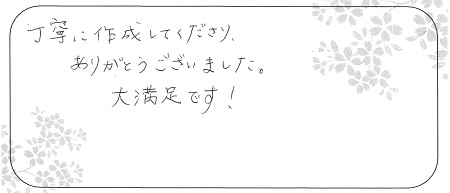 丁寧に作成してくださり、
ありがとうございました。
大満足です！